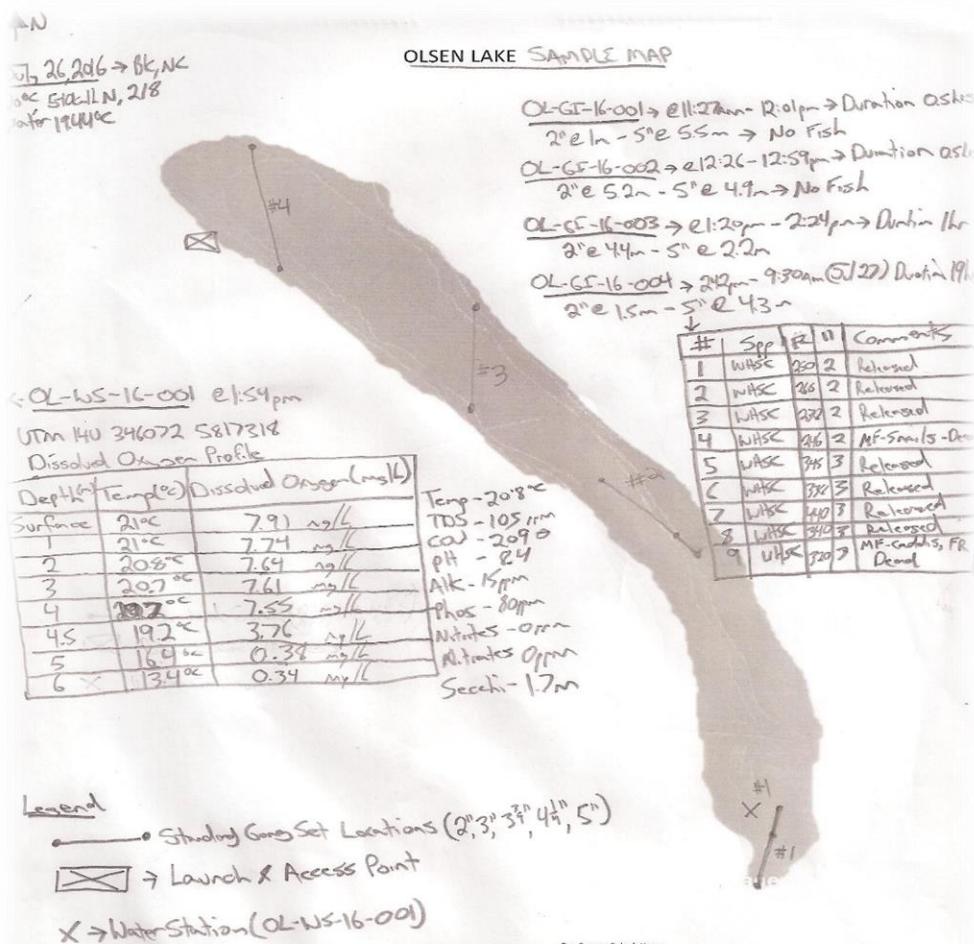 N
OLSEN LAKE SAMPLE MAP
26, 2016 → BK, NC
N, 218
19.44°C
OL-GI-16-001 → @ 11:27am - 12:01pm → Duration
2" @ 1m - 5" @ 5.5m → No Fish
OL-GI-16-002 → @ 12:26 - 12:59pm → Duration
2" @ 5.2m - 5" @ 4.9m → No Fish
OL-GI-16-003 → @ 1:20pm - 2:24pm → Duration 1hr
2" @ 4.4m - 5" @ 2.2m
OL-GI-16-004 → 242pm - 9:30am (Jul 27) Duration 19h
2" @ 1.5m - 5" @ 4.3m
# Spp Comments
1 WHSC 250 2 Released
2 WHSC 265 2 Released
3 WHSC 2 Released
4 WHSC 246 2 MF-Snails-
5 WHSC 345 3 Released
6 WHSC 338 3 Released
7 WHSC 340 3 Released
8 WHSC 340 3 Released
9 WHSC 320 3 MF-Caddis, FR
Dead
#4
#3
#2
OL-WS-16-001 @ 1:54pm
UTM 14U 346072 5817318
Dissolved Oxygen Profile
Depth(m) Temp(°C) Dissolved Oxygen (mg/L)
Surface 21°C 7.91 mg/L
1 21°C 7.74 mg/L
2 20.8°C 7.64 mg/L
3 20.7°C 7.61 mg/L
4 °C 7.55 mg/L
4.5 19.2°C 3.76 mg/L
5 16.4°C 0.38 mg/L
6 13.4°C 0.34 mg/L
Temp - 20.8°C
TDS - 105 ppm
Cond - 209
pH - 8.4
Alk - 15ppm
Phos - 80ppm
Nitrates - 0ppm
Nitrates 0ppm
Secchi - 1.7m
#1
X
#1
Legend
Standing Gang Set Locations (2", 3", 3¾", 4¼", 5")
→ Launch & Access Point
X → Water Station (OL-WS-16-001)